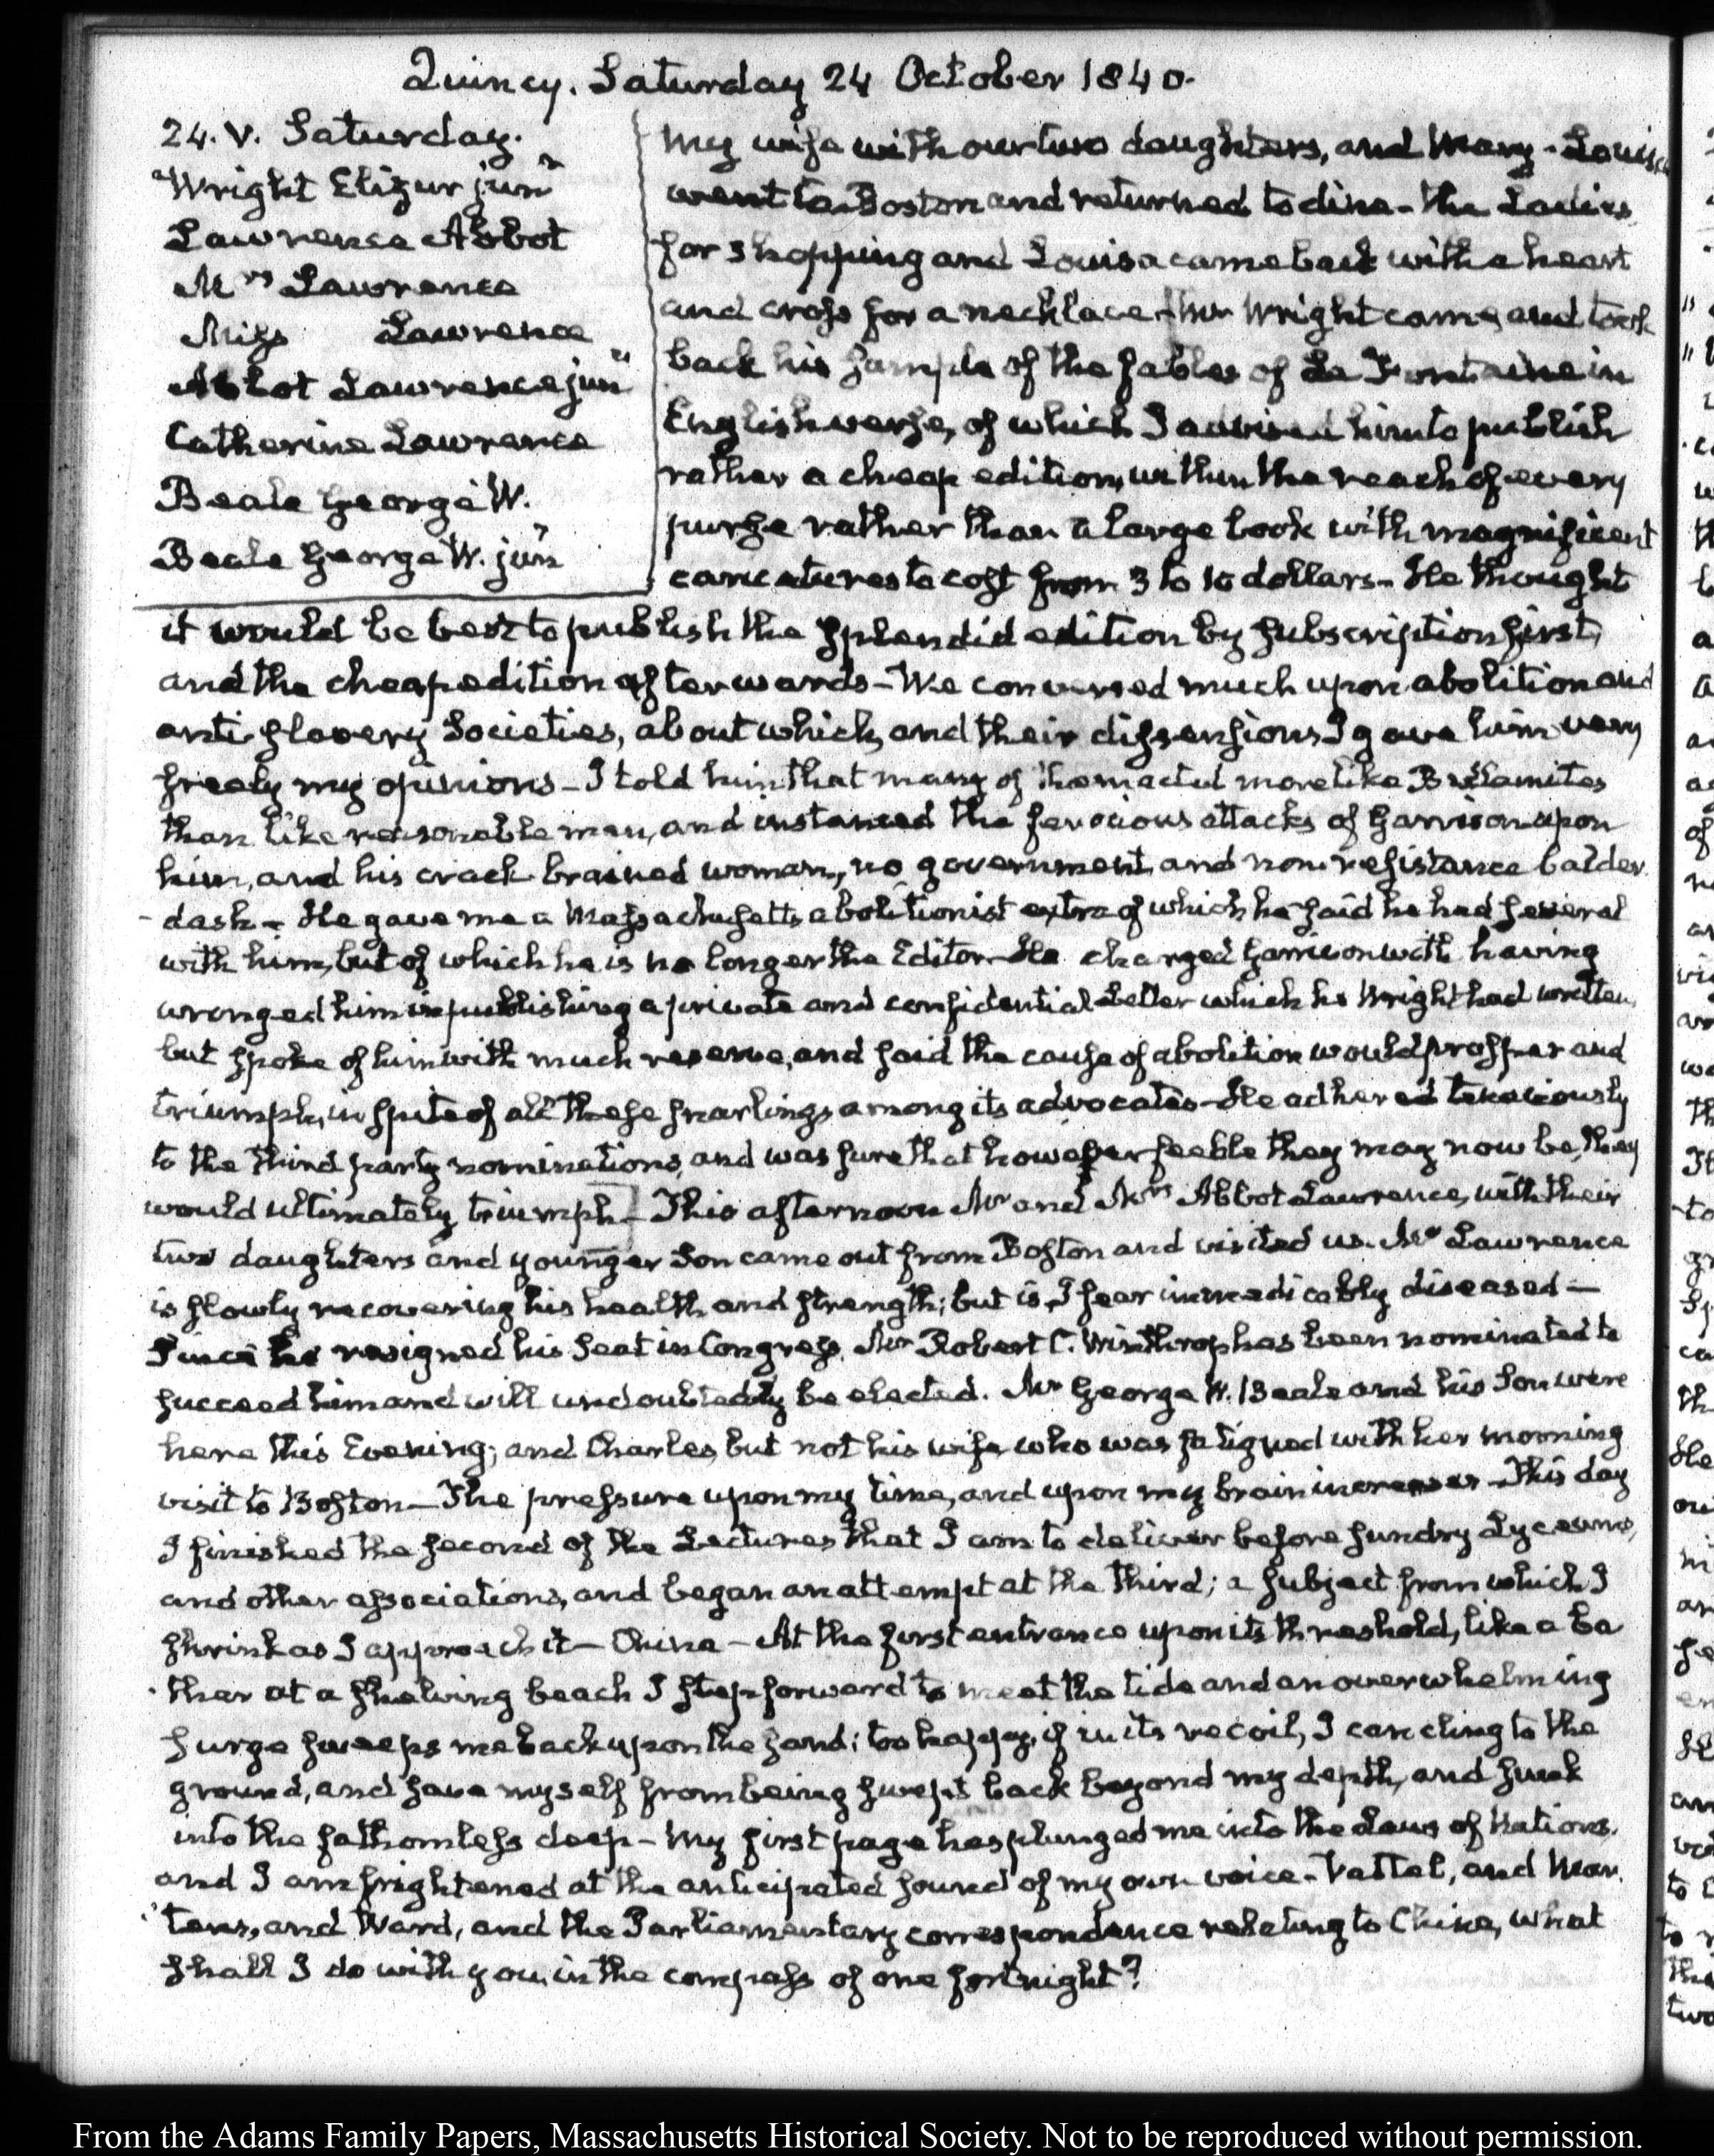 Quincy. Saturday 24 October 1840.
24. V. Saturday.
Wright Elizur junr
Lawrence Abbot
Mrs Lawrence
Miss Lawrence
Abbot Lawrence junr
Catherine Lawrence
Beale George W.
Beale George W. junr
My wife with our two daughters, and Mary-Louisa
went to Boston and returned to dine - the Ladies
for shopping and Louisa came back with a heart
and cross for a necklace - Mr Wright came and took
back his sample of the fables of La Fontaine in
English verse, of which I advised him to publish
rather a cheap edition, within the reach of every
purse rather than a large book with magnificent
caricatures to cost from 3 to 10 dollars - He thought
it would be best to publish the splendid edition by subscription first,
and the cheap edition afterwards - We conversed much upon abolition and
anti-slavery Societies, about which, and their dissensions I gave him very
freely my opinions - I told him that many of them acted more like Bedlamites
than like reasonable men, and instanced the ferocious attacks of Garrison upon
him, and his crack-brained woman, no government, and non-resistance balder
-dash - He gave me a Massachusetts abolitionist extra of which he said he had several
with him, but of which he is no longer the Editor - He charged Garrison with having
wronged him in publishing a private and confidential Letter which he Wright had written,
but spoke of him with much reserve, and said the cause of abolition would prosper and
triumph, in spite of all these snarlings among its advocates - He adhered tenaciously
to the third party nominations, and was sure that however feeble they may now be, they
would ultimately triumph - This afternoon Mr and Mrs Abbot Lawrence, with their
two daughters and younger Son came out from Boston and visited us. Mr Lawrence
is slowly recovering his health and strength; but is, I fear immedicably diseased -
Since he resigned his Seat in Congress, Mr Robert C. Winthrop has been nominated to
succeed him and will undoubtedly be elected. Mr George W. Beale and his Son were
here this Evening; and Charles, but not his wife, who was fatigued with her morning
visit to Boston - The pressure upon my time, and upon my brain increases - This day
I finished the second of the Lectures that I am to deliver before sundry Lyceums,
and other associations, and began an attempt at the third; a subject from which I
shrink as I approach it - China - At the first entrance upon its threshold, like a ba
-ther at a shelving beach I step forward to meet the tide and an overwhelming
surge sweeps me back upon the sand; too happy, if in its recoil, I can cling to the
ground, and save myself from being swept back beyond my depth, and sunk
into the fathomless deep - My first page has plunged me into the Laws of Nations.
and I am frightened at the anticipated sound of my own voice - Vattel, and Mar
-tens, and Ward, and the Parliamentary correspondence relating to China, what
shall I do with you, in the compass of one fortnight?
From the Adams Family Papers, Massachusetts Historical Society. Not to be reproduced without permission.